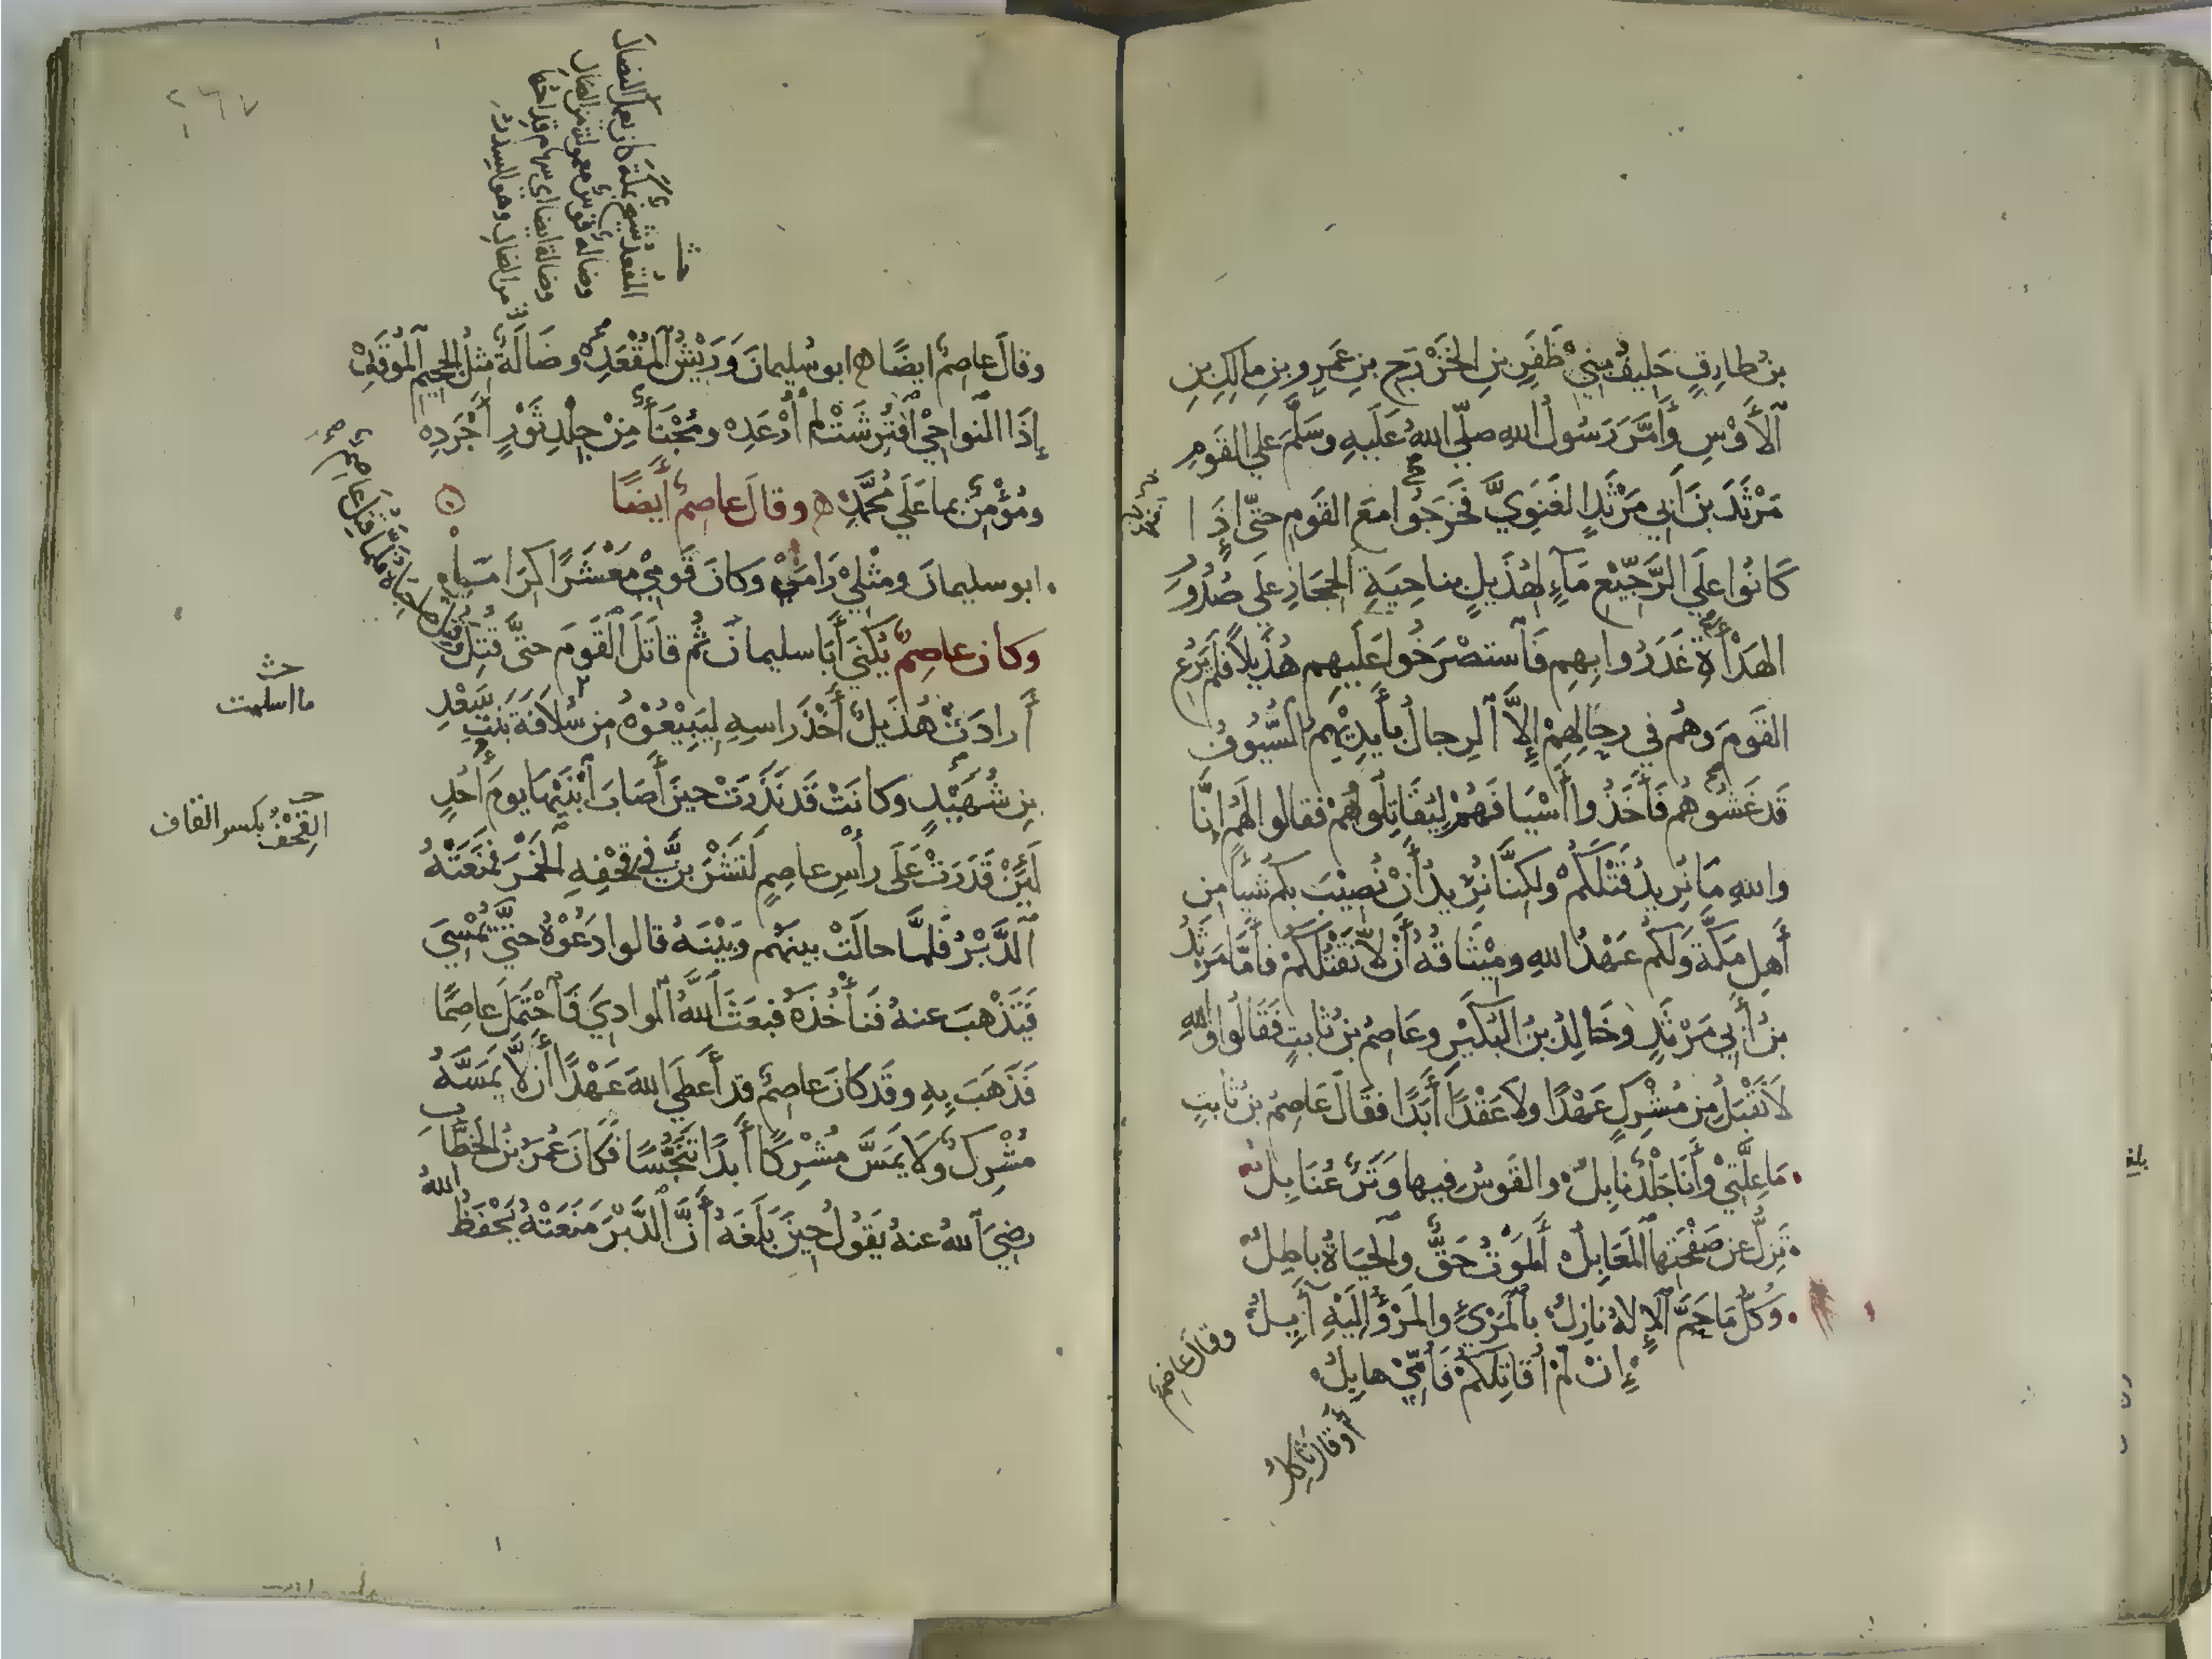 بنُ طارِقٍ حَلِيفُ بَنِي ظَفَرِ بنِ الخَزْرَجِ بنِ عَمرِو بنِ مالِكِ بنِ
ٱلأَوْسِ وَأَمَّرَ رَسُولُ اللهِ صلّى اللهُ عَلَيهِ وسَلَّمَ عَلى القَومِ
مَرْثَدَ بنَ أَبي مَرْثَدٍ الغَنَوِيَّ فَخَرَجُوا مَعَ القَومِ حتّى إِذَا
كَانُوا عَلَى الرَّجِيعِ مَآءٍ لِهُذَيلٍ بناحِيَةِ الحِجَازِ عَلَى صُدُورِ
الهَدْأَةِ غَدَرُوا بِهِم فَٱستَصْرَخُوا عَلَيهِم هُذَيلًا فَلَم يَرُعِ
القَومَ وَهُم في رِحالِهِمْ إِلاَّ ٱلرِجالُ بأَيدِيْهِمُ السُّيُوفُ
قَد غَشُوهُم فَأَخَذُوا أَسْيَافَهُمْ لِيُقَاتِلُوهُمْ فقالوا لَهُم إنَّا
واللهِ مَا نُرِيدُ قَتْلَكُمْ ولكِنَّا نُرِيدُ أَنْ نُصِيْبَ بكُم شَيأً مِن
أَهلِ مَكَّةَ وَلَكُم عَهْدُ اللهِ ومِيْثَاقُهُ أَنْ لاَ نَقْتُلَكُمْ فأَمَّا مَرْثَدُ
بنُ أَبِي مَرْثَدٍ وخَالِدُ بنُ البُكَيْرِ وعَاصِمُ بنُ ثابتٍ فَقَالُوا واللهِ
لاَ نَقْبَلُ مِن مُشْرِكٍ عَهْدًا ولا عَقْدًا أَبَدًا فقَالَ عَاصِمُ بنُ ثابتٍ
مَا عِلَّتِيْ وأَنَا جَلْدٌ نابِلُ والقَوسُ فيها وَتَرٌ عُنَابِلُ
تَزِلُّ عن صَفْحَتِهَا ٱلمَعَابِلُ أَلمَوْتُ حَقٌّ والحَيَاةُ باطِلُ
وَكُلُّ مَا حَمَّ ٱلإِلهُ نازِلُ بٱلمَرْءِ والمَرْؤُ إِلَيْهِ آئِلُ
إِنْ لَمْ أُقاتِلكُمْ فَأُمِّيْ هابِلُ
أو قال ثاكلُ
وقال عاصم
بلغ
٢٦٧
المُقْعَدُ شيخٌ بمكة كان يعمل النصال
وضالةٌ قوسٌ معمولة من الضال
وضالة ايضا اي سهام
من الضال وهو السدر
وقالَ عاصمٌ ايضًا ابو سُليمانَ وَرِيْشُ ٱلمُقْعَدِ وضَالَةٌ مِثلُ الجحيمِ ٱلمُوْقَدِ
إِذَا النَّواحِيْ ٱفتُرِشَتْ لَمْ أُرْعَدِ ومُجْنَأٌ مِنْ جِلْدِ ثَوْرٍ أَجْرَدِ
ومُؤْمِنٌ بما عَلَى مُحمَّدِ وقالَ عاصمٌ أَيضًا
ابو سليمانَ ومثْليْ رَامَى وكانَ قَومِيْ مَعْشَرًا كِرَامَا
وكان عاصِمٌ يُكنَى أَبَا سليمانَ ثُمَّ قاتَلَ ٱلقَومَ حتَّى قُتِلَ
وقُتِلَ صاحباهُ فلمَّا قُتِلَ عاصمٌ
أَرادَتْ هُذَيلٌ أَخْذَ راسِهِ لِيَبِيْعُوْهُ مِن سُلاَفَةَ بنتِ سَعْدِ
بنِ شُهَيْدٍ وكانَتْ قَد نَذَرَتْ حينَ أَصَابَ ٱبْنَيْهَا يومَ أُحُدٍ
لَئِنْ قَدَرَتْ عَلَى رأسِ عاصِمٍ لَتَشْرَبَنَّ في قِحْفِهِ الخَمْرَ فَمَنَعَتْهُ
ٱلدَّبْرُ فَلَمَّا حالَتْ بينَهُم وَبَيْنَهُ قالوا دَعُوْهُ حتَّى يُمْسِيَ
فَتَذْهَبَ عنهُ فَنَأْخُذَهُ فبَعَثَ ٱللهُ الوادِيَ فَٱحْتَمَلَ عاصِمًا
فَذَهَبَ بِهِ وقَد كانَ عَاصِمٌ قد أَعطَى اللهَ عَهْدًا أَن لاَّ يَمَسَّهُ
مُشْرِكٌ ولاَ يَمَسَّ مُشْرِكًا أَبدًا تَنَجُّسًا فَكَانَ عُمَرُ بنُ الخطَّابِ
رضيَ ٱللهُ عنهُ يَقُولُ حِينَ بَلَغَهُ أَنَّ ٱلدَّبْرَ مَنَعَتْهُ يَحْفَظُ اللهُ
ما اسلمت
القِحْفُ بكسر القاف